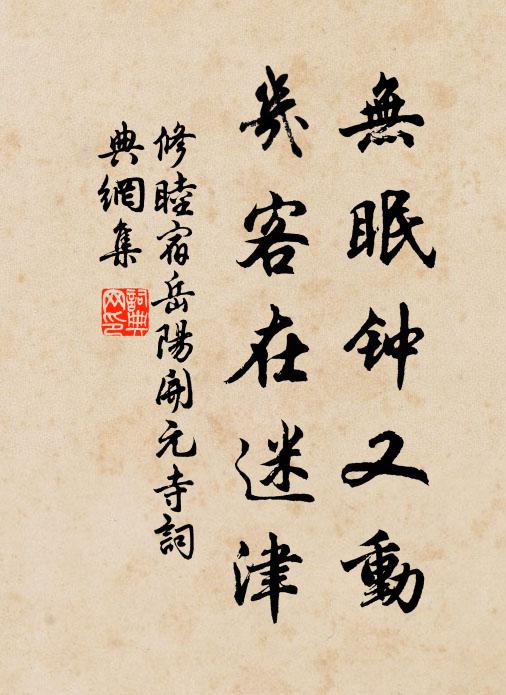 無眠钟又動
幾客在迷津
修睦宿岳陽開元寺詞
典網集
詞典網印